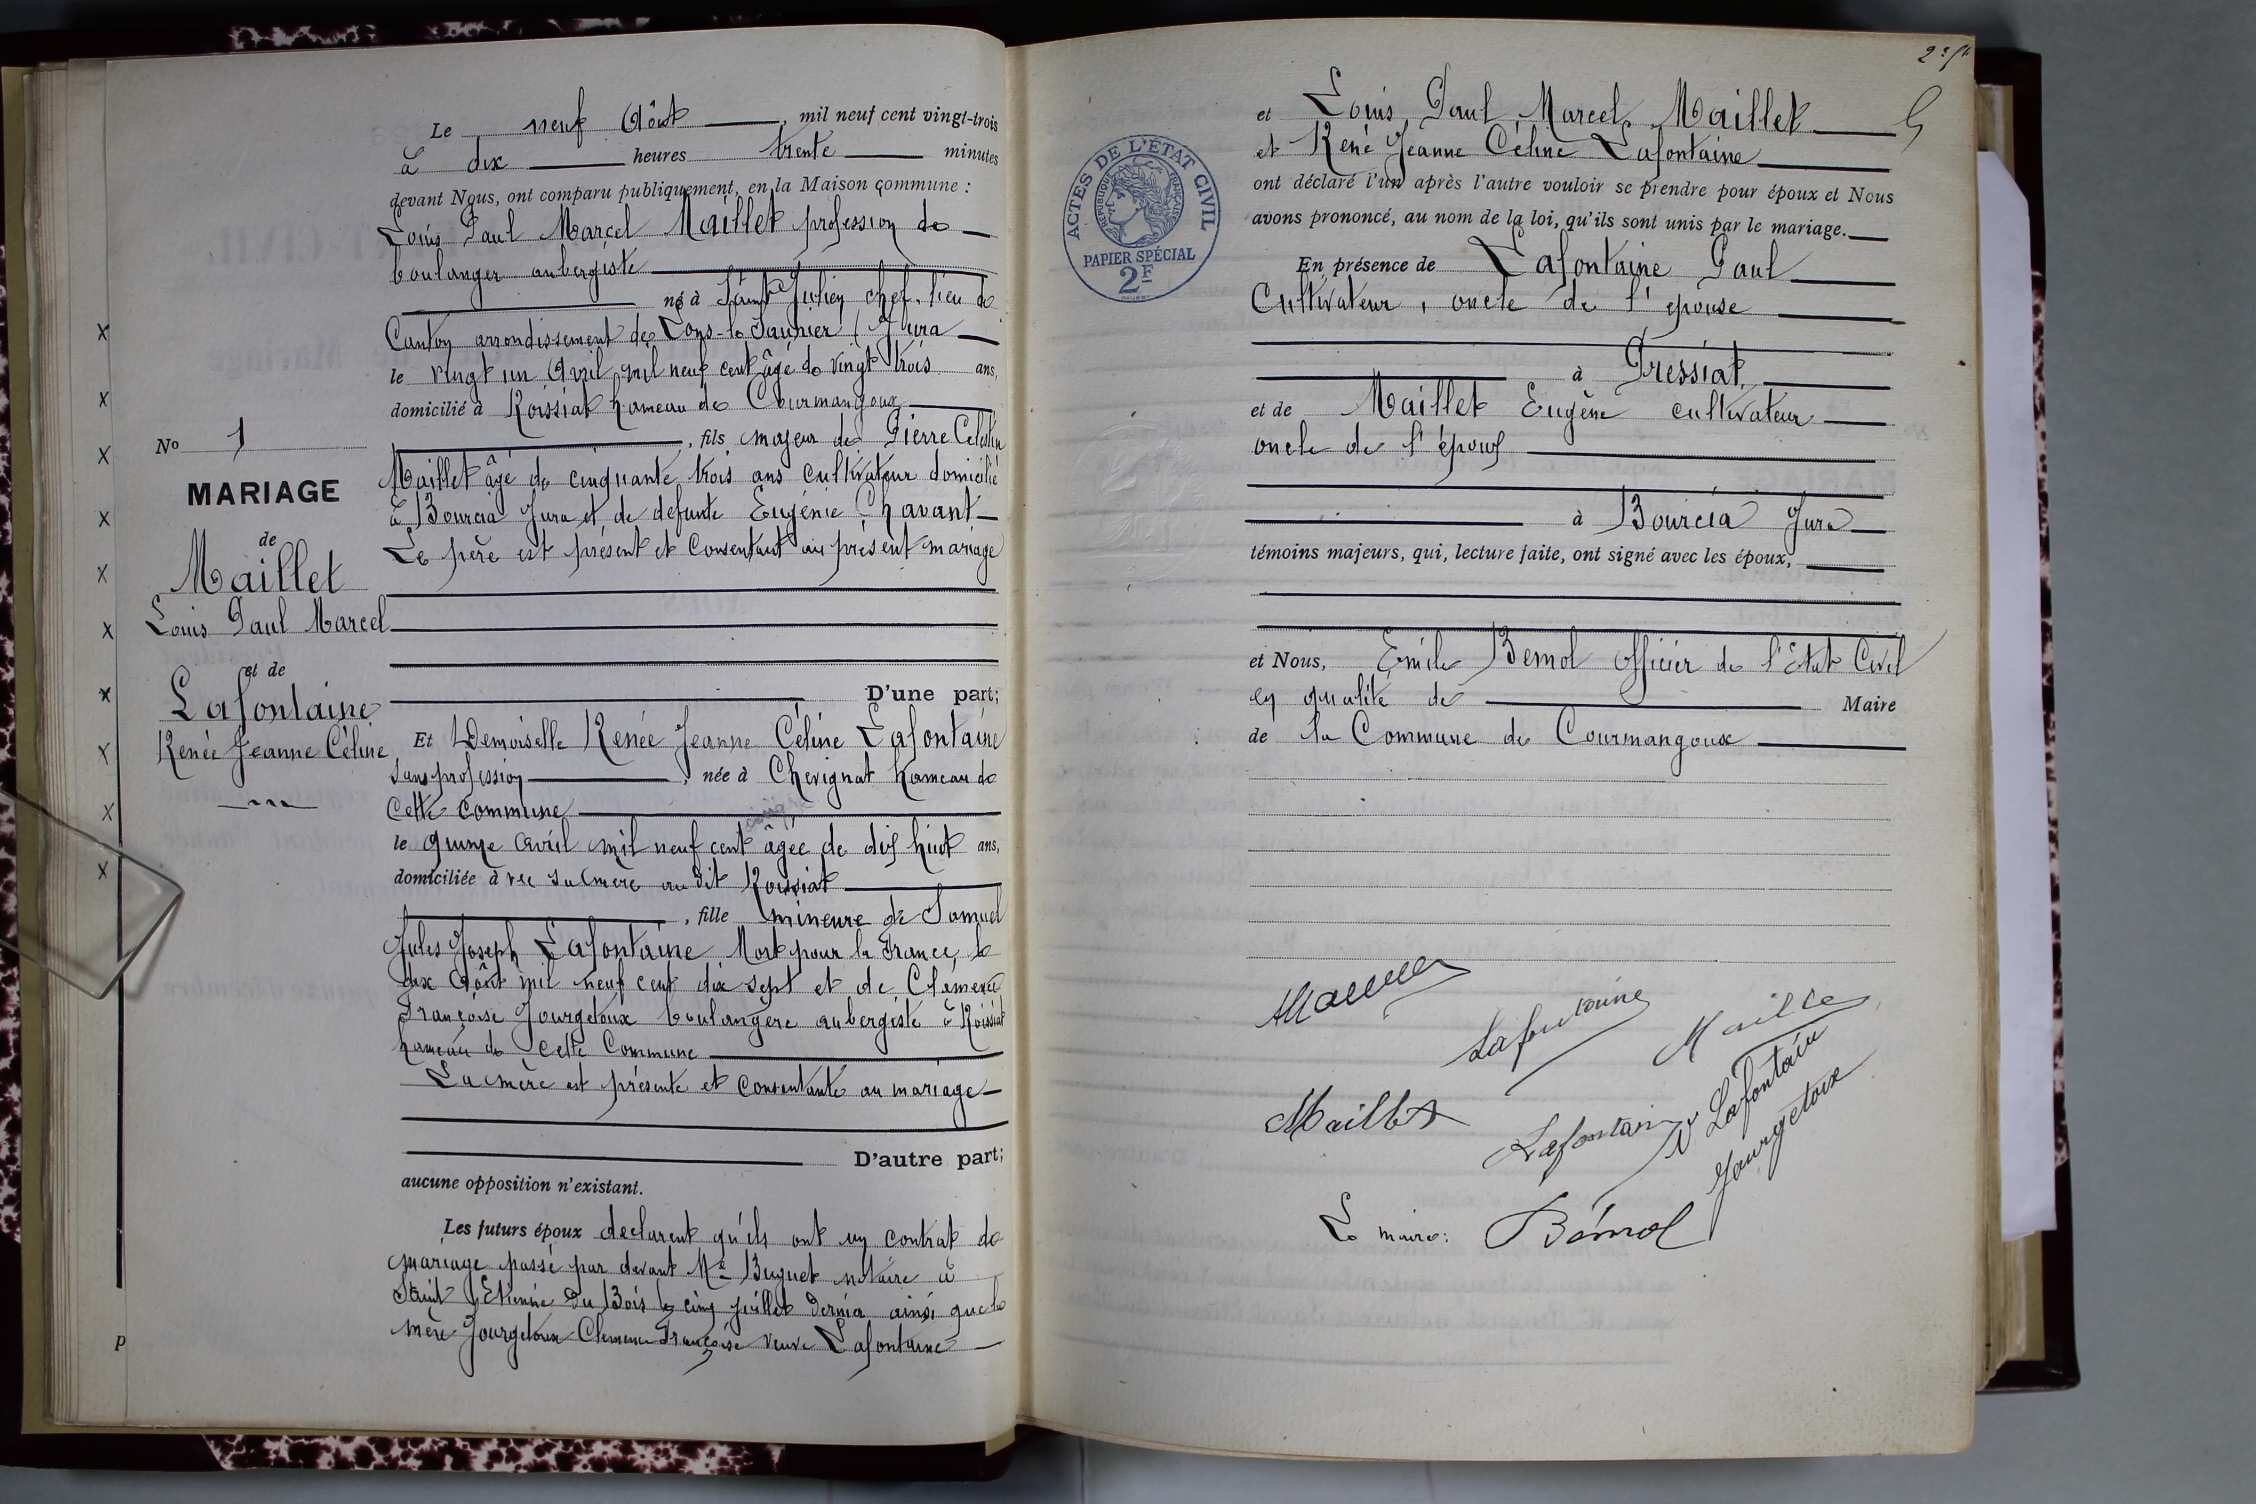 Le neuf Août, mil neuf cent vingt-trois
à dix heures trente minutes
devant Nous, ont comparu publiquement, en la Maison commune :
Louis Paul Marcel Maillet profession de
boulanger aubergiste
né à Saint Julien chef-lieu de
Canton arrondissement de Lons-le Saunier (Jura
le vingt un Avril mil neuf cent âgé de vingt trois ans,
domicilié à Roissiat hameau de Courmangoux
, fils majeur de Pierre Celestin
Maillet âgé de cinquante trois ans cultivateur domicilié
à Bourcia Jura et de defunte Eugénie Chavant
Le père est présent et Consentant au présent mariage
D'une part;
Et Demoiselle Renée Jeanne Céline Lafontaine
Sans profession, née à Chevignat hameau de
Cette Commune
cinq
le quinze Avril mil neuf cent âgée de dix huit ans,
domiciliée avec sa mère au dit Roissiat
, fille mineure de Samuel
Jules Joseph Lafontaine Mort pour la France, le
dix Août mil neuf cent dix sept et de Clémence
Françoise Gourgetoux boulangère aubergiste à Roissiat
hameau de Cette Commune
La mère est présente et Consentante au mariage
D'autre part;
aucune opposition n'existant.
Les futurs époux declarent qu'ils ont un contrat de
mariage passé par devant Me Buguet notaire à
Saint Etienne du Bois le cinq juillet dernier ainsi que la
mère Gourgetoux Clemence Françoise veuve Lafontaine
No 1
MARIAGE
de
Maillet
Louis Paul Marcel
et de
Lafontaine
Renée Jeanne Céline
P
5
ACTES DE L'ÉTAT CIVIL
RÉPUBLIQUE FRANÇAISE
PAPIER SPÉCIAL
2F
et Louis Paul Marcel Maillet
et René Jeanne Céline Lafontaine
ont déclaré l'un après l'autre vouloir se prendre pour époux et Nous
avons prononcé, au nom de la loi, qu'ils sont unis par le mariage.
En présence de Lafontaine Paul
Cultivateur, oncle de l'epouse
à Pressiat,
et de Maillet Eugène cultivateur
oncle de l'époux
à Bourcia Jura
témoins majeurs, qui, lecture faite, ont signé avec les époux,
et Nous, Emile Bemol officier de l'Etat Civil
en qualité de Maire
de la Commune de Courmangoux
Lafontaine
Maillet
Maillet
Lafontain
V Lafontain
Gourgetoux
Le maire: Bémol